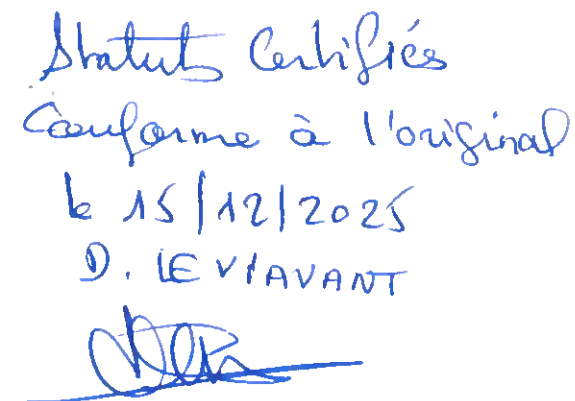 Statuts Certifiés
Conforme à l'original
le 15/12/2025
D. LEVIAVANT